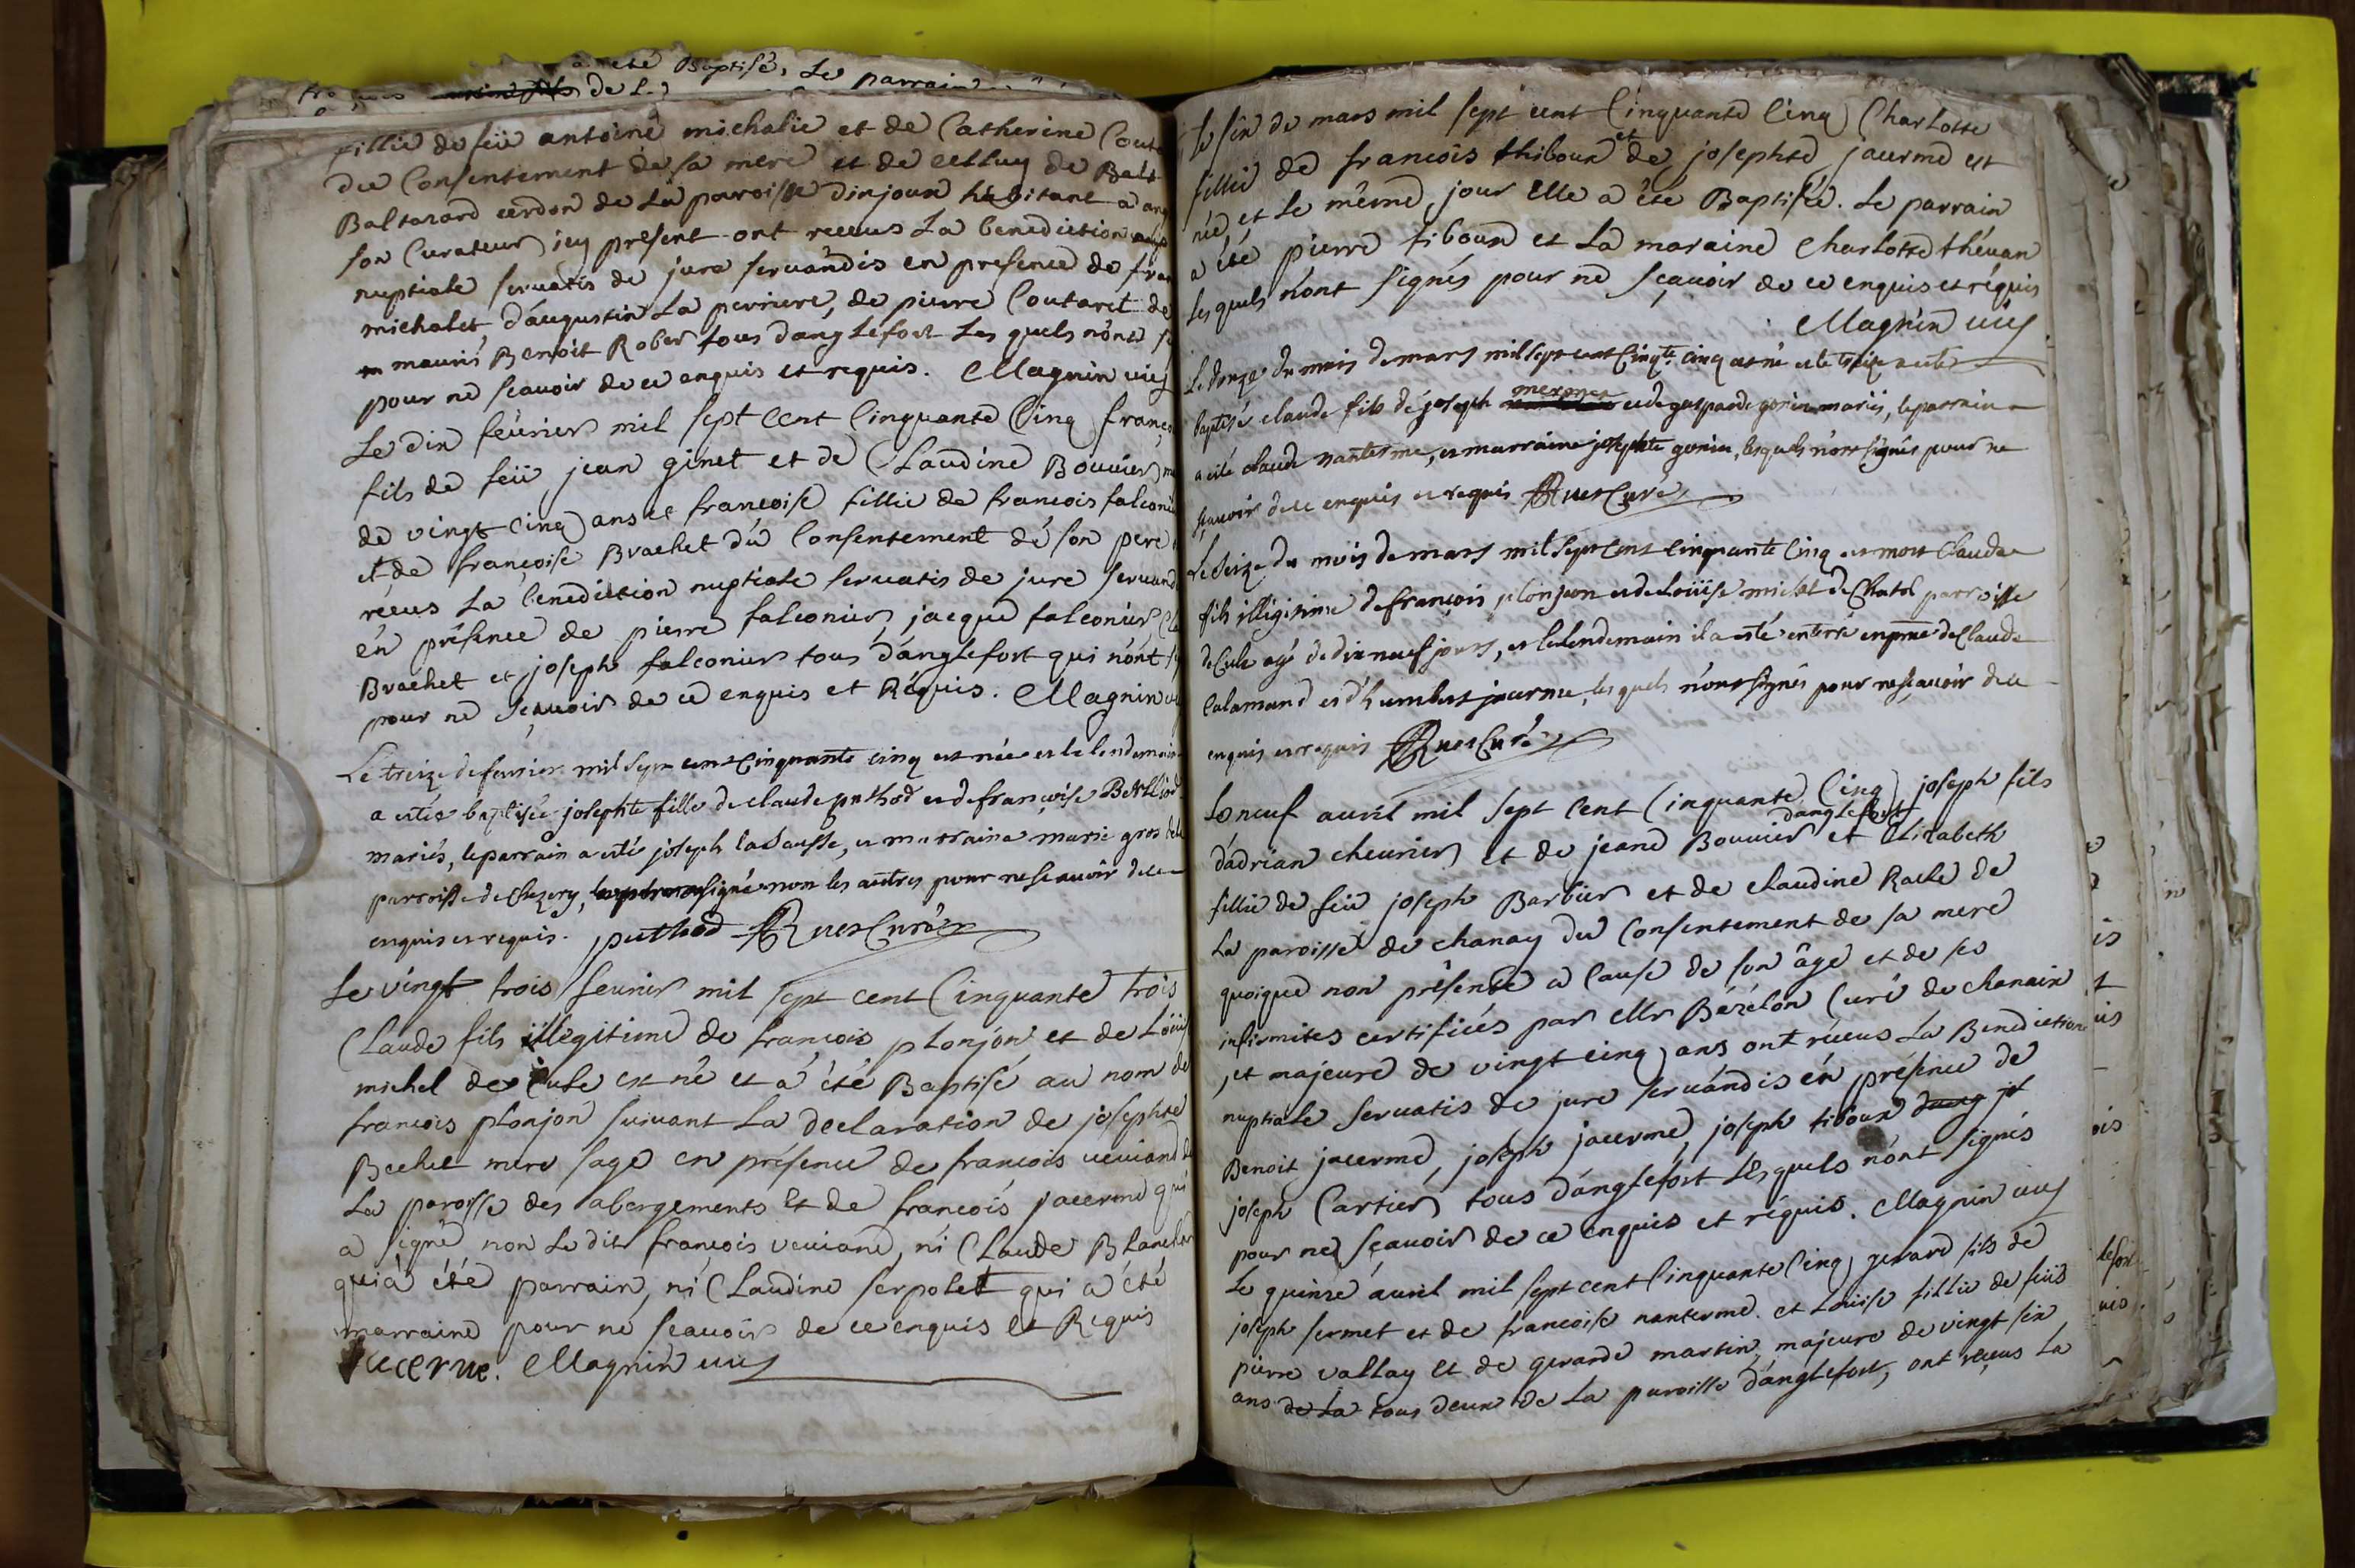 a été Baptisé, Le parrain
de L
fillie de feü antoine michalie et de Catherine Cout
du Consentement de sa mere et de celluy de Balt
Baltazard cerdon de La paroisse dinjoux habitant a ang
son Curateur icy present ont recus La benediction
nuptiale servatis de jure servandis en presence de fran
michalet d'augustin La perriere, de pierre Coutaret de
mauris Benoit Rober tous d'anglefort Les quels n'ont s
pour ne scavoir de ce enquis et requis. Magnin vic
Le dix février mil sept cent Cinquante Cinq franço
fils de feü jean ginet et de Claudine Bouvier m
de vingt Cinq ans et francoise fillie de francois falconie
et de françoise Brachet du Consentement de son pere
récus La benediction nuptiale servatis de jure servand
en présence de pierre falconier, jacque falconier Cl
Brachet et joseph falconier tous d'anglefort qui n'ont s
pour ne sçavoir de ce enquis et Réquis. Magnin vic
Le treize de fevrier mil sept cent Cinquante cinq est née et le lendemain
a estée baptisée josephte fille de claude puthod et de françoise Berthod
mariés, le parrain a esté joseph lasausse, et marraine marie gros de la
parroisse de Chezery, signé non les autres pour ne scavoir de ce
enquis et requis. puthod Rues Curé
Le vingt trois fevrier mil sept cent Cinquante trois
Claude fils illegitime de francois plonjon et de Loüis
michel de Cule est né et a été Baptisé au nom de
francois plonjon suivant La declaration de josephte
Bechet mere sage en présence de francois veuiand de
La paroisse des abergements et de francois jacerme qui
a signé non Le dit francois veuiand, ni Claude Blanche
qui a été parrain, ni Claudine serpolet qui a été
marraine pour ne scavoir de ce enquis et Requis
jacerme. Magnin vic
Le six de mars mil sept cent Cinquante Cinq Charlotte
fillie de francois thiboux et de josephte jacerme est
née et Le même jour elle a été Baptisée. Le parrain
a été pierre tiboux et La maraine Charlotte thévan
Les quels n'ont signés pour ne sçavoir de ce enquis et réquis
Magnin vic
Le douze du mois de mars mil sept cent Cinqte cinq est né et le treize a esté
baptisé claude fils de joseph mermet et de gasparde gonin mariés, le parrain
a esté claude nanterme, et marraine josephte gonin, lesquels n'ont signés pour ne
sçavoir de ce enquis et requis Rues Curé
Le Seize du mois de mars mil sept Cent Cinquante Cinq est mort Claude
fils illigitime de françois plonjon et de Loüise michel de Chatel parroisse
de Cule agé de dix neuf jours, et le lendemain il a esté enterré en pnce de Claude
Calamand et d'humbert jacerme, les quels n'ont signés pour ne scavoir de ce
enquis et requis Rues Curé
Le neuf avril mil sept Cent Cinquante Cinq joseph fils
d'adrian chevrier et de jeane Bouvier d'anglefort et Elizabeth
fillie de feü joseph Barbier et de claudine Rache de
La paroisse de chanay du Consentement de sa mere
quoique non présente a Cause de son âge et de ses
infirmites certifiées par Mr Bézélon Curé de chanaix
, et majeure de vingt cinq ans ont récus La Benediction
nuptiale servatis de jure servandis en présence de
Benoit jacerme, joseph jacerme, joseph tiboux et
joseph Cartier tous d'anglefort Lesquels n'ont signés
pour ne sçavoir de ce enquis et réquis. Magnin vic
Le quinze avril mil sept cent Cinquante Cinq gerard fils de
joseph sermet et de francoise nanterme. et Louise fillie de feüs
pierre vallay et de gerarde martin majeure de vingt six
ans de La tous deux de La paroisse d'anglefort, ont reçeus La